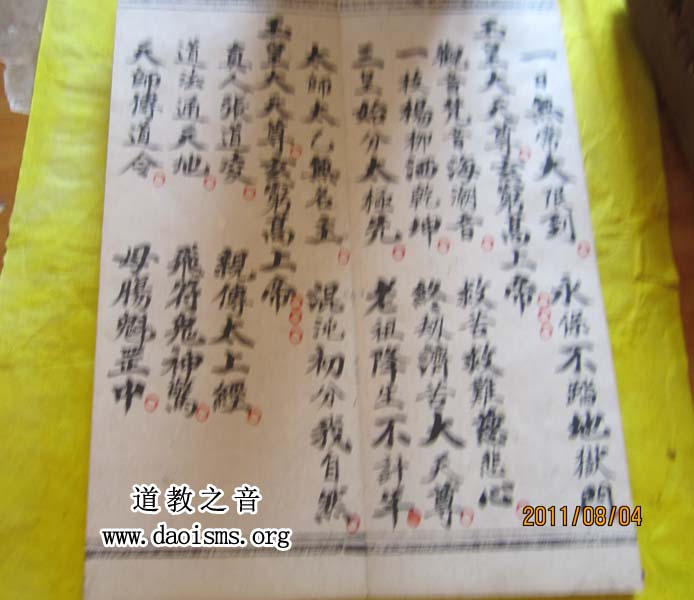 一日無常大限到 永保不踏地獄門
玉皇大天尊玄穹高上帝
觀音梵音海潮音 救苦救難慈悲心
一枝楊柳洒乾坤 終劫濟苦大天尊
三皇始分太極先 老祖降生不計年
太師太乙無名主 混沌初分我自然
玉皇大天尊玄穹高上帝
真人張道凌 親傳太上經
道法通天地 飛符鬼神驚
天師傳道令 斗罡中
道教之音
www.daoisms.org
2011/08/04